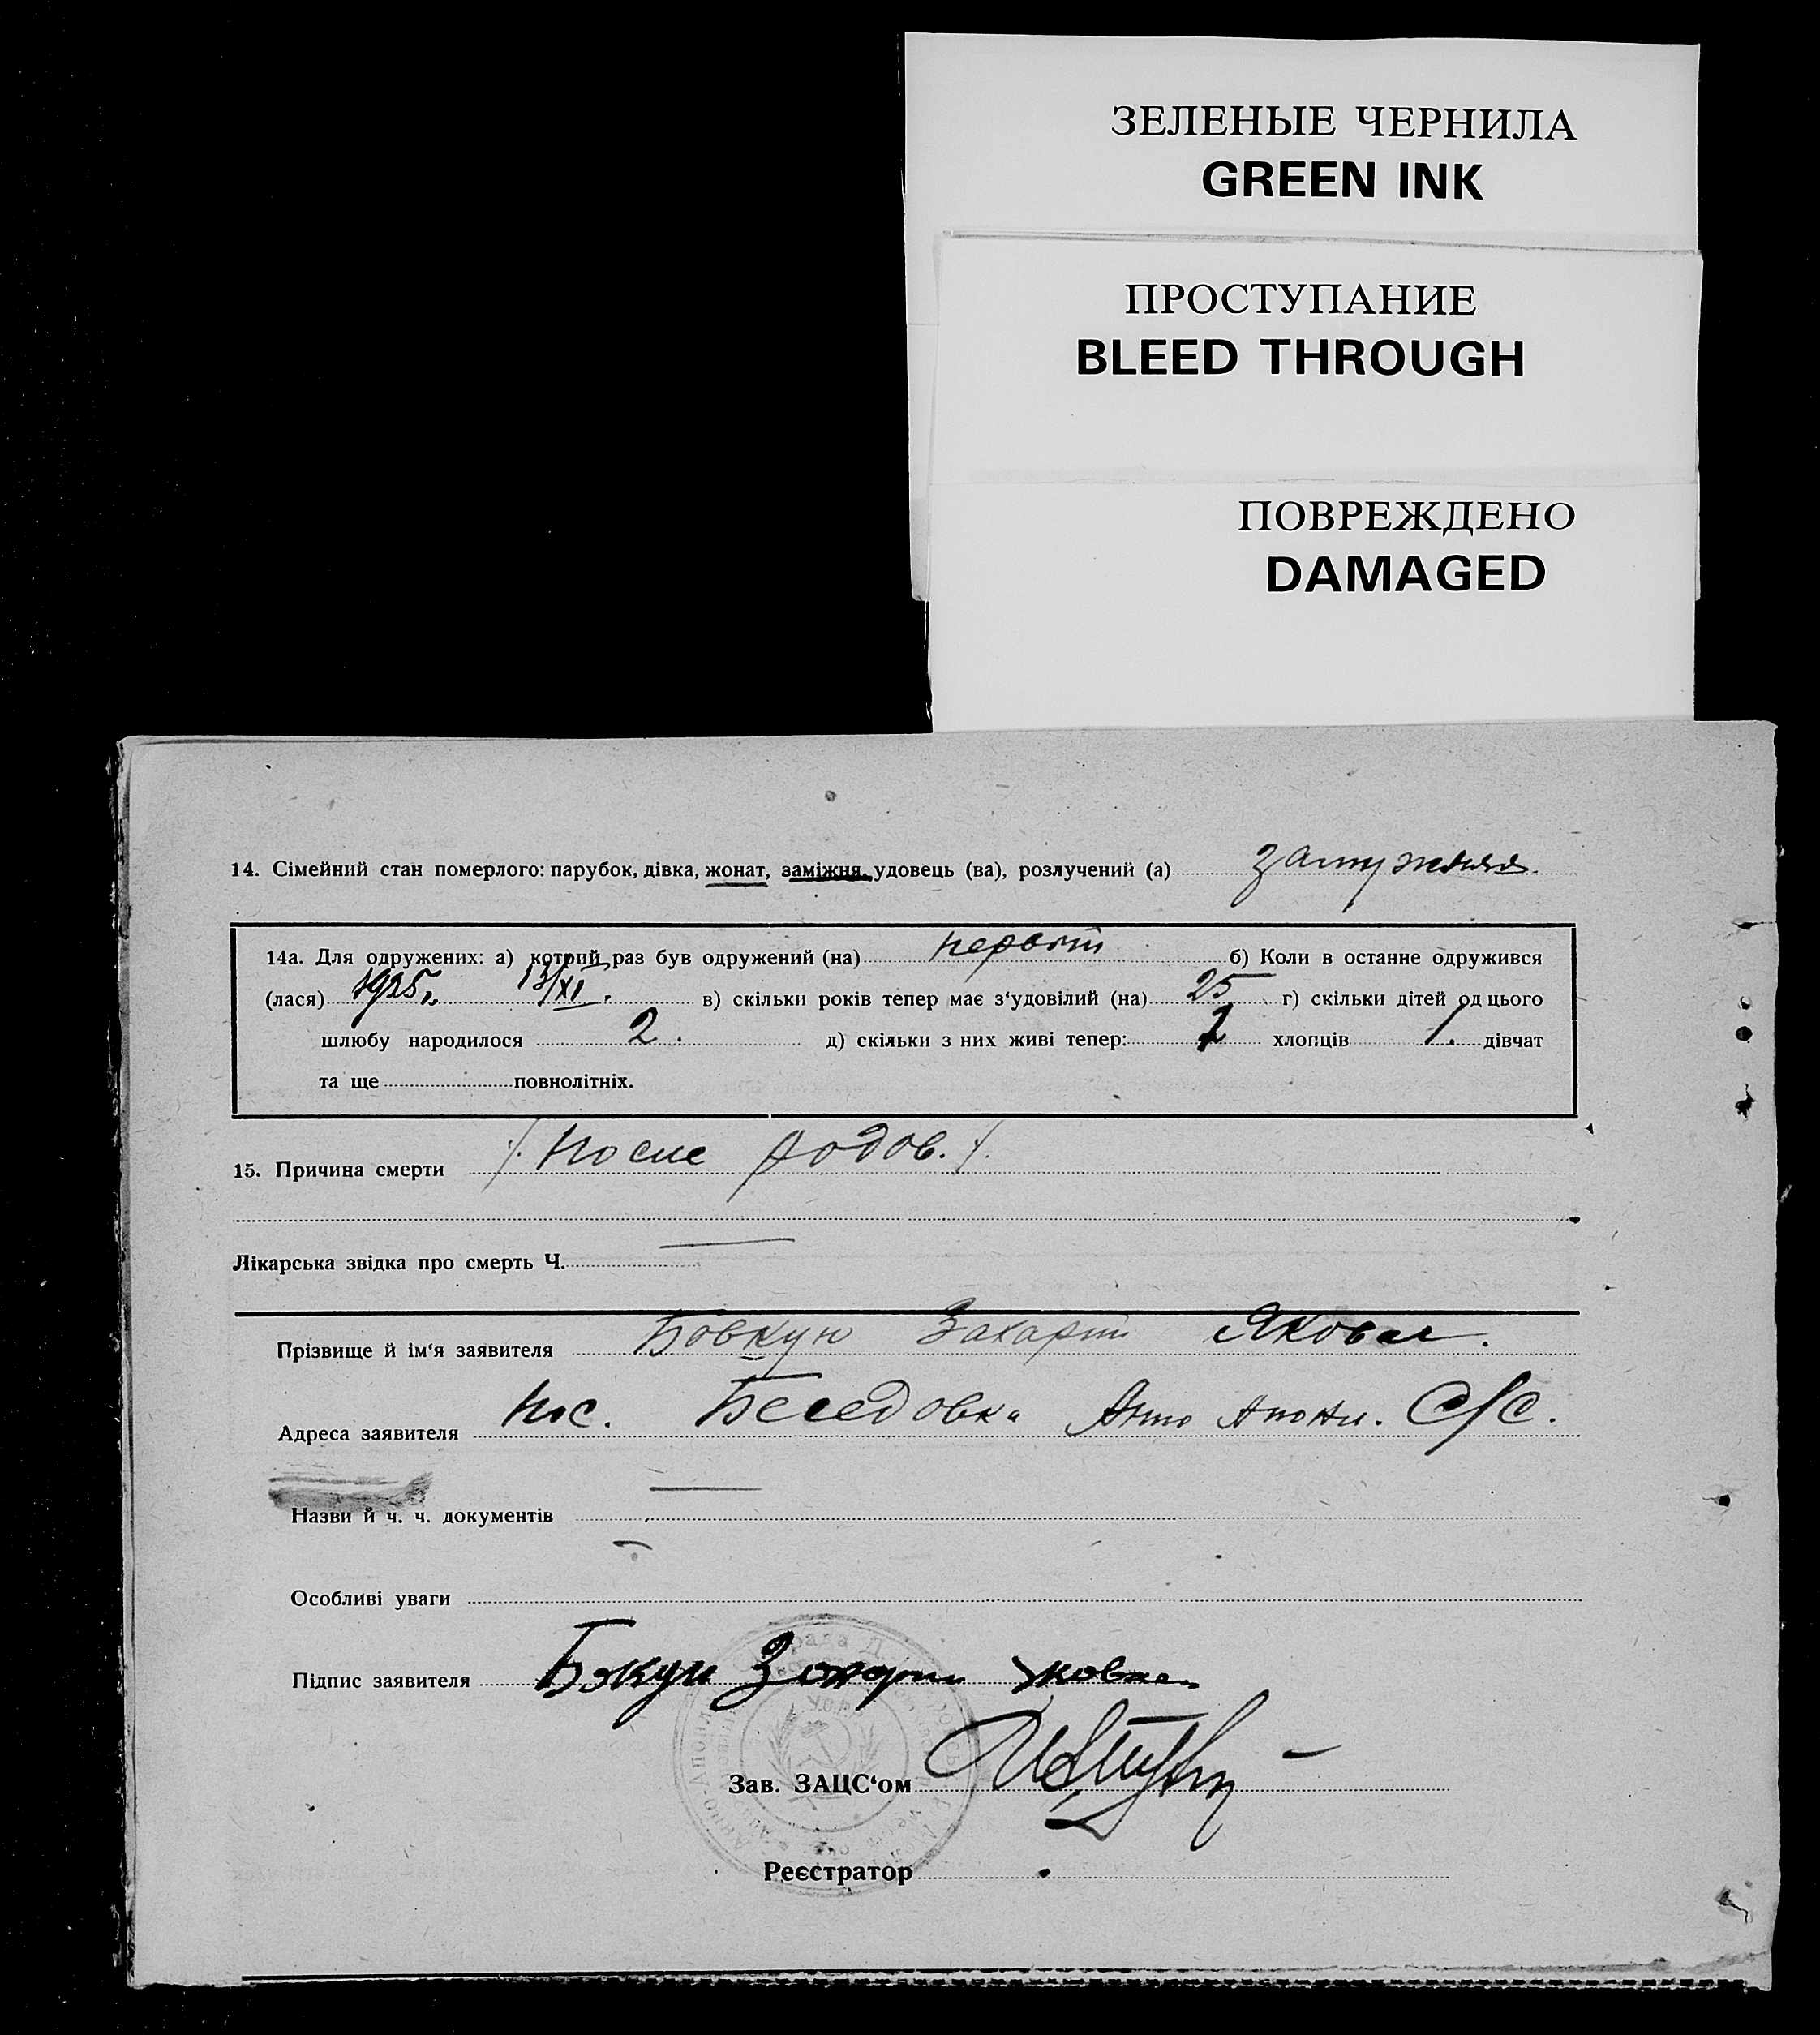 ЗЕЛЕНЫЕ ЧЕРНИЛА
GREEN INK
ПРОСТУПАНИЕ
BLEED THROUGH
ПОВРЕЖДЕНО
DAMAGED
14. Сімейний стан померлого: парубок, дівка, жонат, заміжня, удовець (ва), розлучений (а) замужняя.
14а. Для одружених: а) котрий раз був одружений (на) первый б) Коли в останне одружився
(лася) 1925 г. 13/XI. в) скільки років тепер має з‘удовілий (на) 25 г) скільки дітей од цього
шлюбу народилося 2. д) скільки з них живі тепер: 1 хлопців 1. дівчат
та ще повнолітніх.
15. Причина смерти /. После родов. /.
Лікарська звідка про смерть Ч. —
Прізвище й ім‘я заявителя Бовкун Захарий Яковл.
Адреса заявителя пос. Беседовка Анно С/С.
Назви й ч. ч. документів —
Особливі уваги —
Підпис заявителя Бовкун Захарий
Зав. ЗАЦС‘ом
Реєстратор